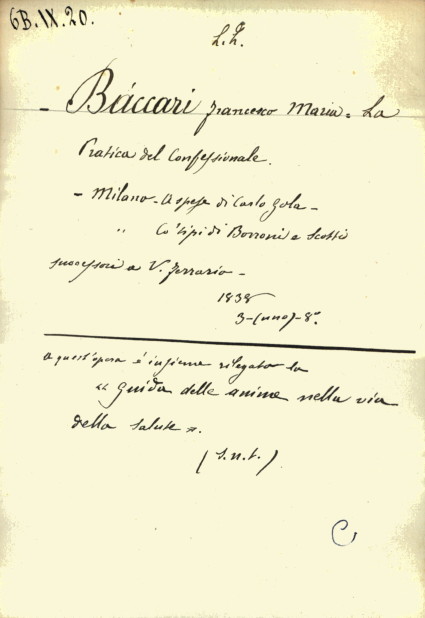 6B.IX.20.
- Báccari Francesco Maria = La
Pratica del Confessionale.
- Milano - A spese di Carlo Gola -
" Co' tipi di Borroni e Scotti
successori a V. Ferrario -
1838
3 - (uno) - 8°.
a quest'opera è insieme rilegato la
« Guida delle anime nella via
della salute ».
(s.n.t.)
C